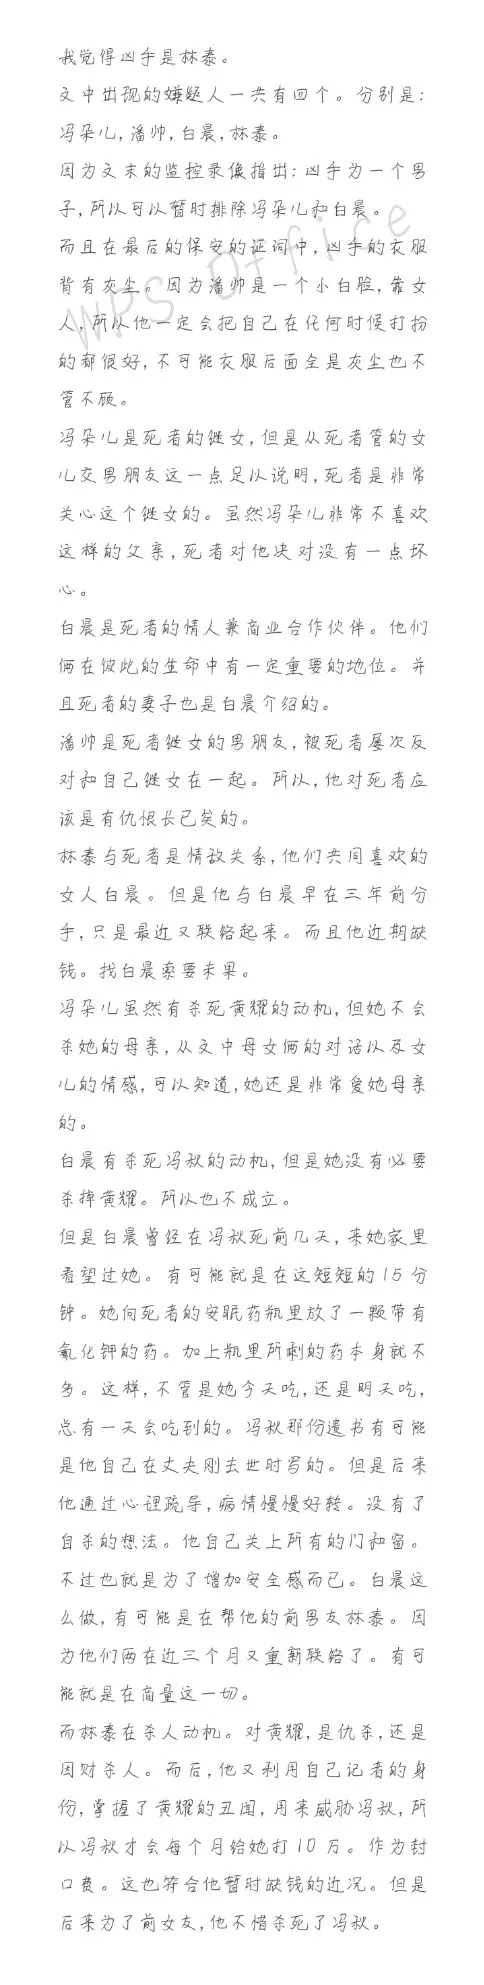 我觉得凶手是林泰。
文中出现的嫌疑人一共有四个。分别是：
冯朵儿，潘帅，白晨，林泰。
因为文末的监控录像指出：凶手为一个男
子，所以可以暂时排除冯朵儿和白晨。
而且在最后的保安的证词中，凶手的衣服
背有灰尘。因为潘帅是一个小白脸，靠女
人，所以他一定会把自己在任何时候打扮
的都很好，不可能衣服后面全是灰尘也不
管不顾。
冯朵儿是死者的继女，但是从死者管的女
儿交男朋友这一点足以说明，死者是非常
关心这个继女的。虽然冯朵儿非常不喜欢
这样的父亲，死者对他决对没有一点坏
心。
白晨是死者的情人兼商业合作伙伴。他们
俩在彼此的生命中有一定重要的地位。并
且死者的妻子也是白晨介绍的。
潘帅是死者继女的男朋友，被死者屡次反
对和自己继女在一起。所以，他对死者应
该是有仇恨长已矣的。
林泰与死者是情敌关系，他们共同喜欢的
女人白晨。但是他与白晨早在三年前分
手，只是最近又联络起来。而且他近期缺
钱。找白晨索要未果。
冯朵儿虽然有杀死黄耀的动机，但她不会
杀她的母亲，从文中母女俩的对话以及女
儿的情感，可以知道，她还是非常爱她母亲
的。
白晨有杀死冯秋的动机，但是她没有必要
杀掉黄耀。所以也不成立。
但是白晨曾经在冯秋死前几天，来她家里
看望过她。有可能就是在这短短的15分
钟。她向死者的安眠药瓶里放了一颗带有
氰化钾的药。加上瓶里所剩的药本身就不
多。这样，不管是她今天吃，还是明天吃，
总有一天会吃到的。冯秋那份遗书有可能
是他自己在丈夫刚去世时写的。但是后来
他通过心理疏导，病情慢慢好转。没有了
自杀的想法。他自己关上所有的门和窗。
不过也就是为了增加安全感而已。白晨这
么做，有可能是在帮他的前男友林泰。因
为他们两在近三个月又重新联络了。有可
能就是在商量这一切。
而林泰在杀人动机。对黄耀，是仇杀，还是
因财杀人。而后，他又利用自己记者的身
份，掌握了黄耀的丑闻，用来威胁冯秋，所
以冯秋才会每个月给她打10万。作为封
口费。这也符合他暂时缺钱的近况。但是
后来为了前女友，他不惜杀死了冯秋。
WPS Office